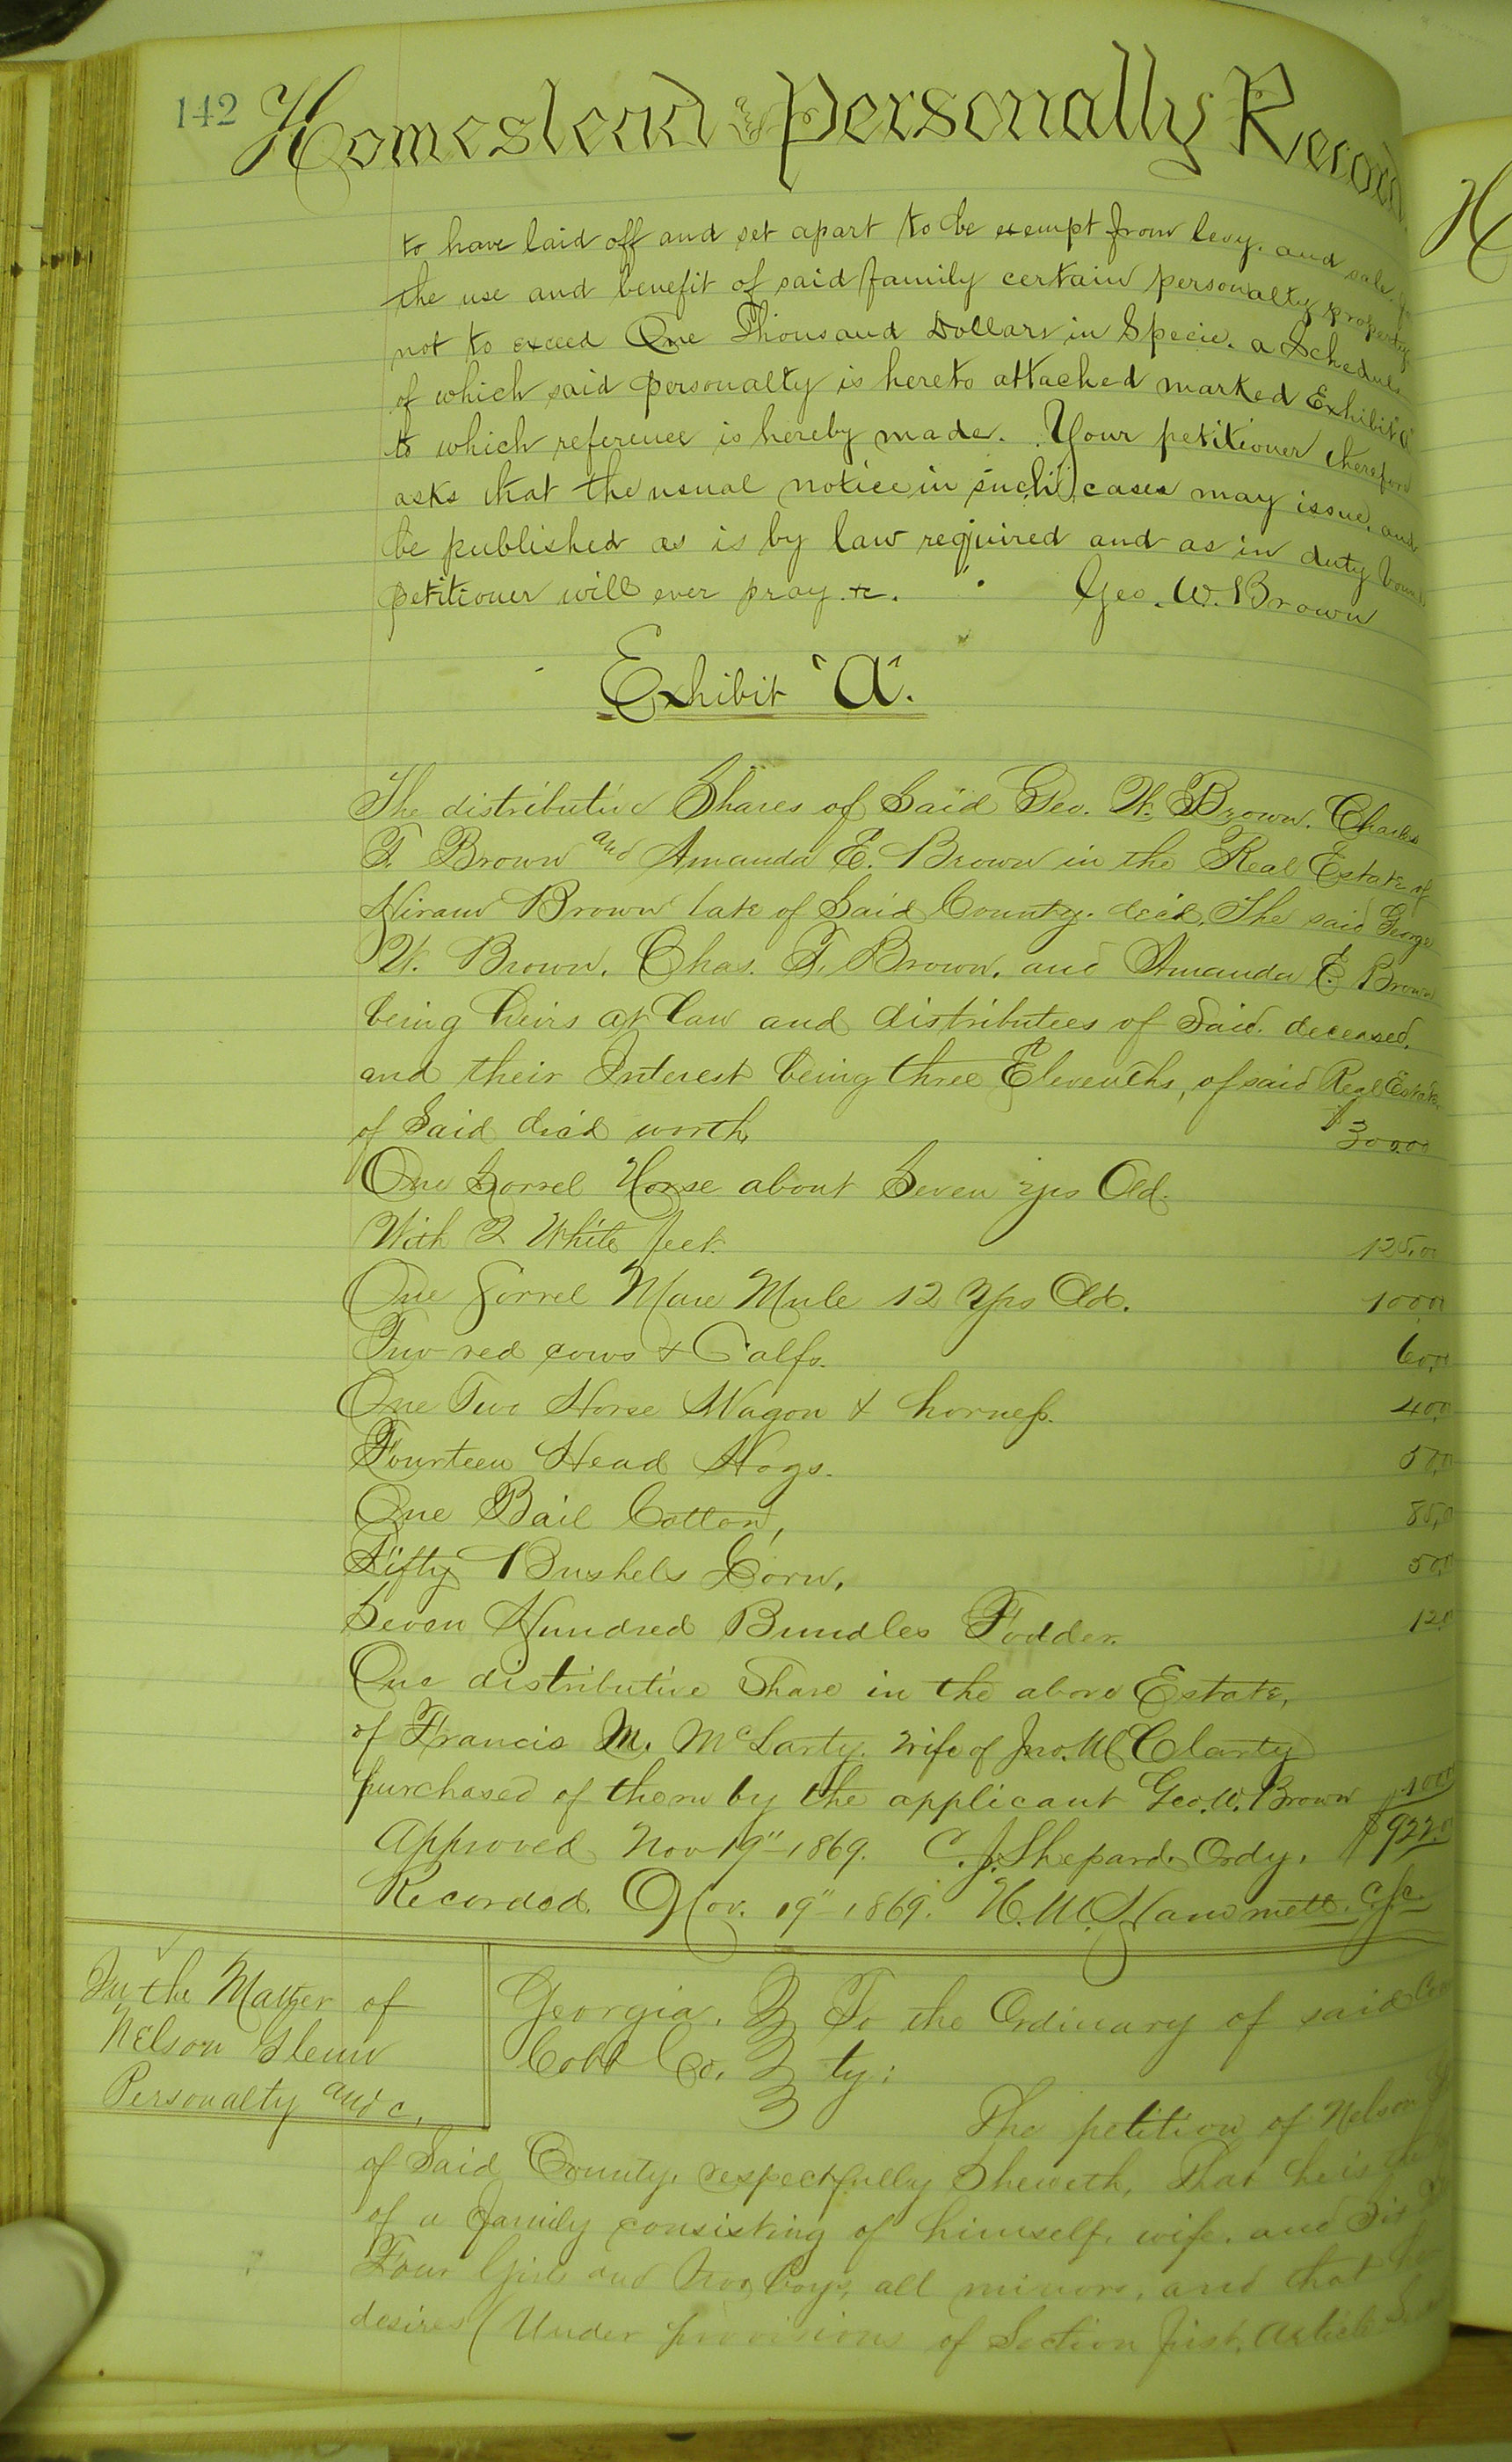 142
Homestead & Personalty Record
to have laid off and set apart to be exempt from levy. and sale. for
the use and benefit of said family certain personalty property
not to exceed One Thousand Dollars in Specie. a Schedule
of which said personalty is hereto attached marked Exhibit A
to which reference is hereby made. Your petitioner therefore
asks that the usual notice in such cases may issue, and
be published as is by law required and as in duty bound
petitioner will ever pray. &c.
Geo. W. Brown
Exhibit "A".
The distributive Shares of Said Geo. W. Brown. Charles
F. Brown and Amanda E. Brown in the Real Estate of
Hiram Brown late of Said County. decd, The said George
W. Brown. Chas. F. Brown, and Amanda E. Brown
being heirs at law and distributees of Said. deceased,
and their Interest being three Elevenths, of said Real Estate
of Said decd worth $ 300.00
One Sorrel Horse about Seven yrs Old.
With 2 White feet. 125.00
One Sorrel Mare Mule 12 Yrs Old. 100.0
Two red cows & Calfs. 60.0
One Two Horse Wagon & horness. 40.0
Fourteen Head Hogs. 50.0
One Bail Cotton, 85.0
Fifty Bushels Corn, 50.0
Seven Hundred Bundles Fodder. 12.0
One distributive Share in the above Estate,
of Francis M. McLarty. wife of Jno. McClarty
purchased of them by the applicant Geo. W. Brown 100
Approved Nov 19" 1869. C. J. Shepard. Ordy. $922.0
Recorded. Nov. 19" 1869. H. M. Hammett. C.S.C.
In the Matter of
Nelson Glenn
Personalty and c.
Georgia. } To the Ordinary of said Coun
Cobb Co. } ty:
The petition of Nelson
of Said County, respectfully Sheweth, That he is the
of a family consisting of himself, wife. and Six
Four Girls and two boys, all minors, and that he
desires (Under provisions of Section first, Article